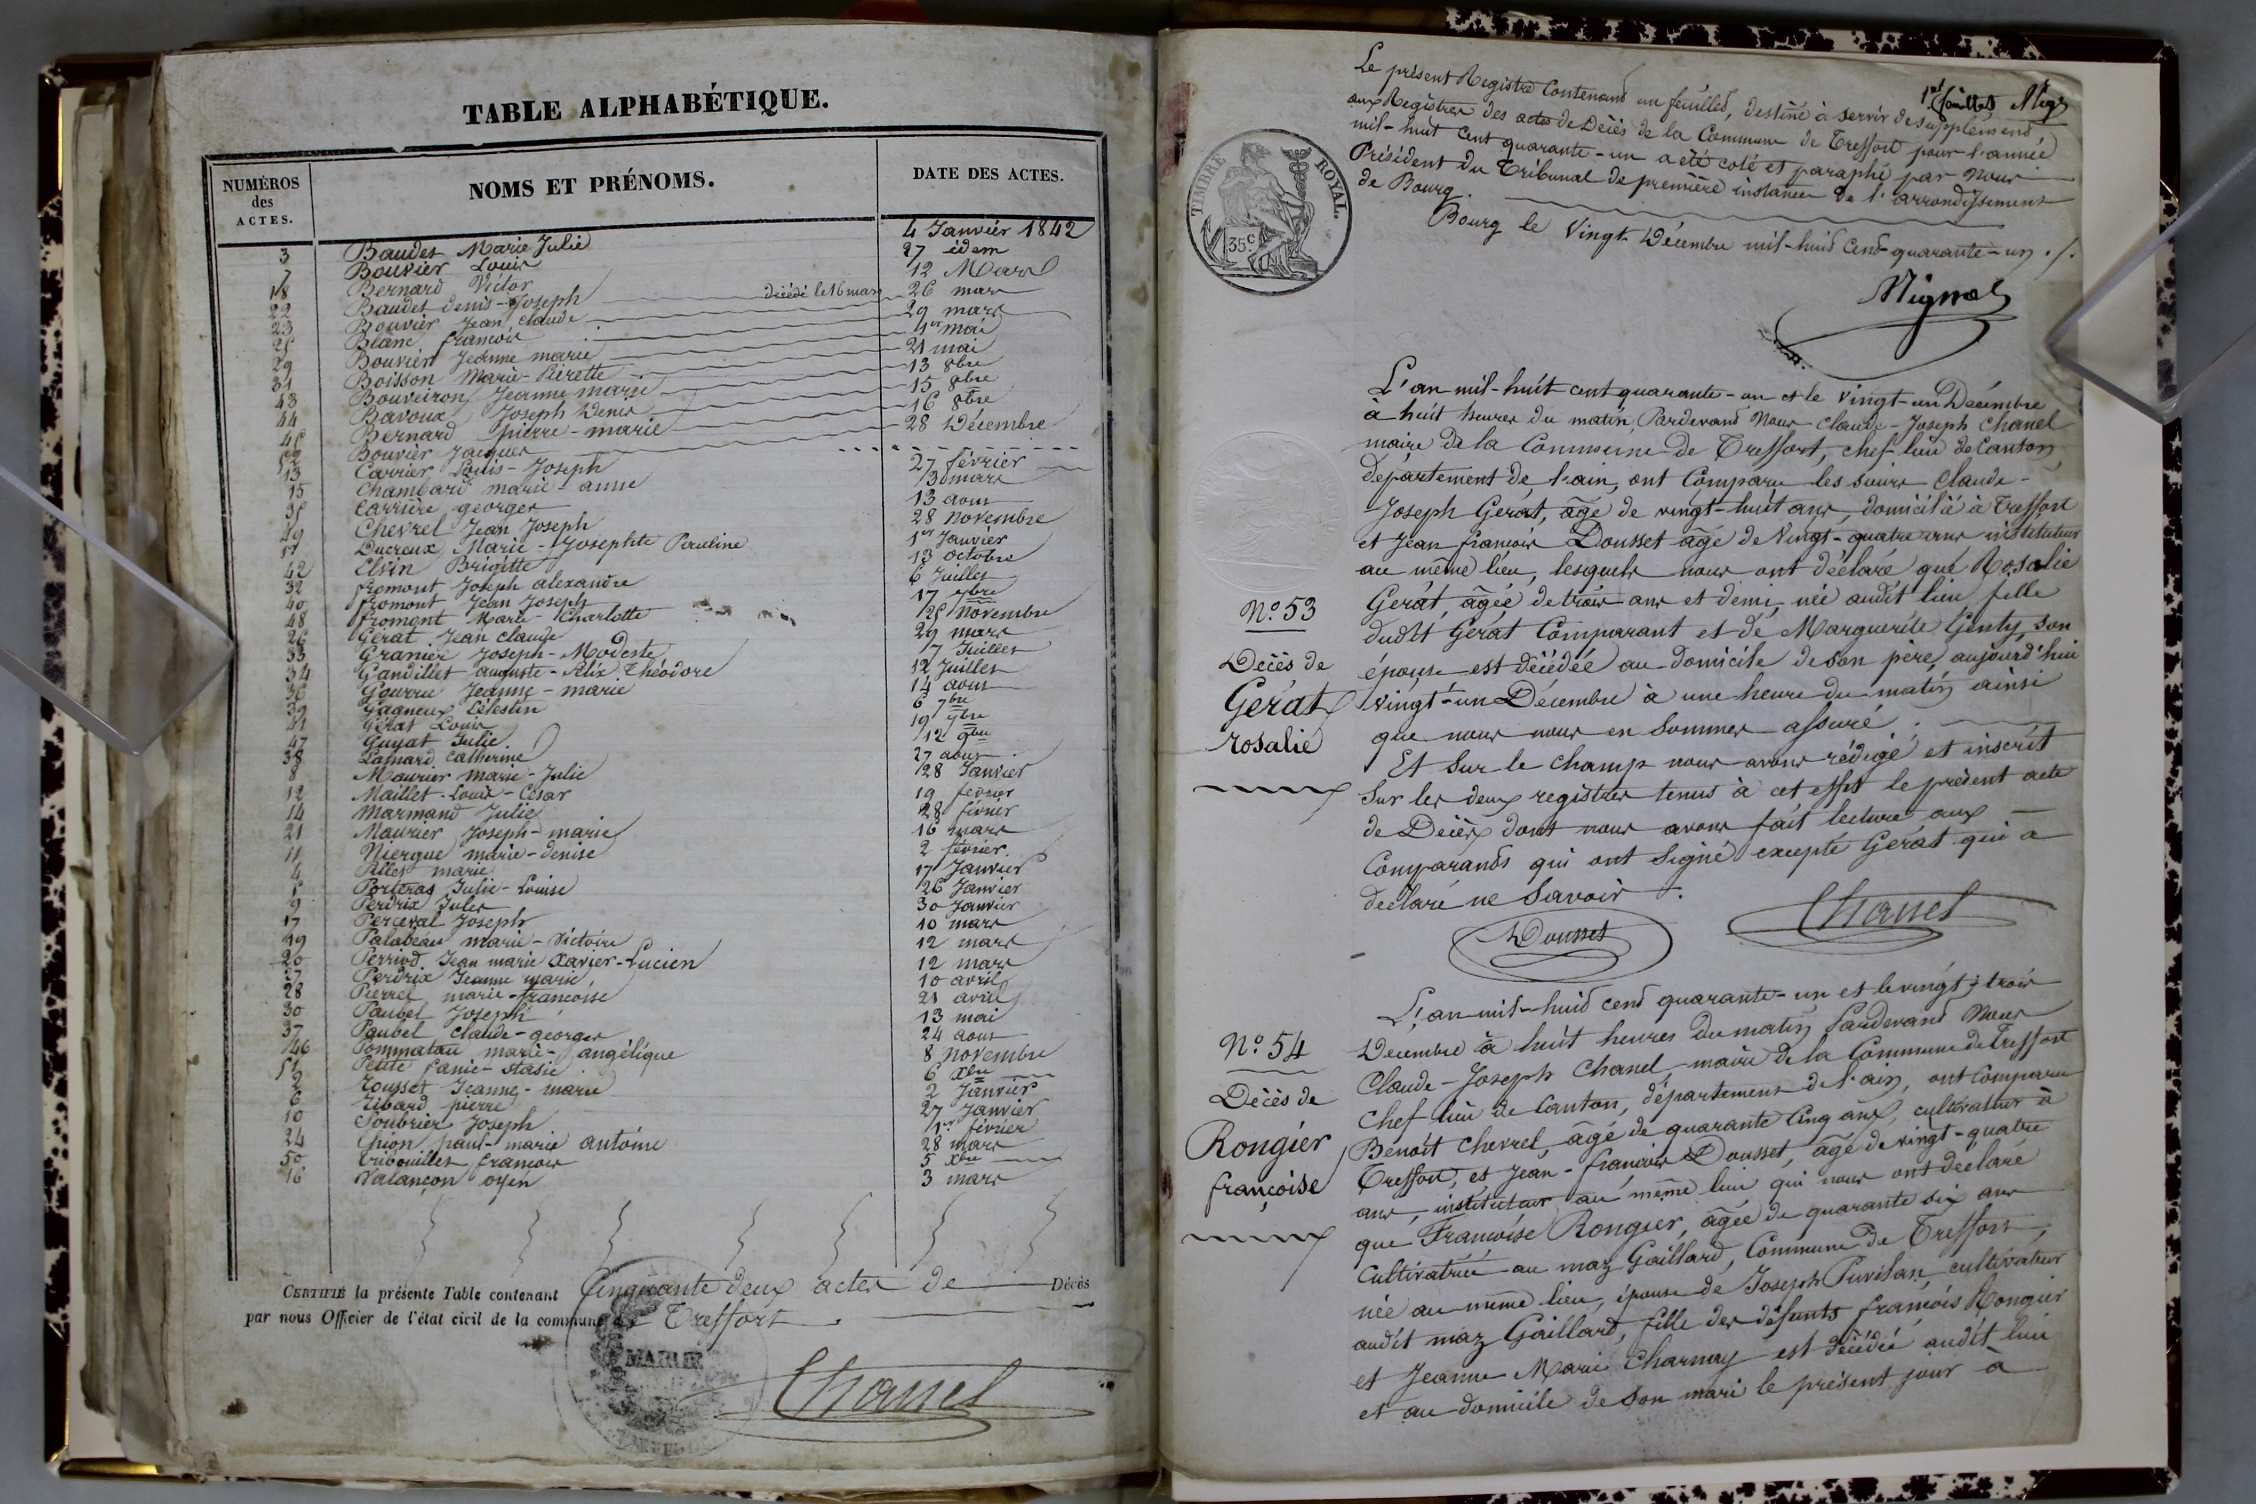 TABLE ALPHABÉTIQUE.
NUMÉROS des ACTES.
NOMS ET PRÉNOMS.
DATE DES ACTES.
3 Baudet Marie Julie 4 Janvier 1842
7 Bouvier Louis 27 idem
18 Bernard Victor 12 Mars
22 Baudet denis-Joseph décédé le 16 mars 26 mars
23 Bouvier Jean Claude 29 mars
25 Blanc françois 1er mai
29 Bouvier Jeanne marie 21 mai
31 Boisson Marie-Pierette 13 8bre
43 Bouveiron Jeanne marie 15 8bre
44 Bavoux Joseph Denis 16 8bre
45 Bernard pierre-marie 28 Décembre
52 Bouvier Jacques
13 Carrier Louis-Joseph 27 février
15 Chambard marie-anne 3 mars
35 Carrière georges 13 aout
49 Chevrel Jean Joseph 28 Novembre
1 Ducreux Marie-Josephte Pauline 1er Janvier
42 Elvin Brigitte 13 octobre
32 fromont Joseph alexandre 6 Juillet
40 fromont Jean Joseph 17 7bre
48 fromont Marie-Charlotte 25 Novembre
26 Gerat Jean claude 29 mars
33 Granier Joseph-Modeste 7 Juillet
34 Gandillet auguste-Félix Théodore 12 Juillet
36 Gourru Jeanne-marie 14 aout
39 Gagneux Célestin 6 7bre
41 Gérat Louis 19 7bre
47 Guyat Julie 12 9bre
38 Lamard Catherine 27 aout
8 Maurier marie-Julie 28 Janvier
12 Maillet Louis-César 19 février
14 Marmand Julie 28 février
21 Maurier Joseph-marie 16 mars
11 Niergue marie-denise 2 février
4 Pillet marie 17 Janvier
5 Porteras Julie-Louise 26 Janvier
9 Perdrix Jules 30 Janvier
17 Perceval Joseph 10 mars
19 Palabeau marie-Victoire 12 mars
20 Perriod Jean marie Xavier-Lucien 12 mars
27 Perdrix Jeanne marie 10 avril
28 Pierrel marie-françoise 21 avril
30 Paubel Joseph 13 mai
37 Paubel claude-georges 24 aout
46 Pommatau marie-angélique 8 Novembre
51 Petite fanie-stasie 6 Xbre
2 Rousset Jeanne-marie 2 Janvier
6 Ribard pierre 27 Janvier
10 Soubrier Joseph 1er février
24 Chion paul-marie antoine 28 mars
50 Tribouillet françois 5 Xbre
16 Valançon oyen 3 mars
CERTIFIÉ la présente Table contenant Cinquante deux actes de Décès
par nous Officier de l'état civil de la commune de Treffort.
MAIRIE
Chanel
1er feuillet Mign
Le présent Registre Contenant un feuillet, destiné à servir de supplément
aux Registres des actes de Décès de la Commune de Treffort pour l'année
mil-huit cent quarante-un a été coté et paraphé par nous
Président du Tribunal de première instance de l'arrondissement
de Bourg.
Bourg le Vingt Décembre mil-huit Cent quarante-un ./.
TIMBRE ROYAL.
35c
Mignot
L'an mil-huit cent quarante-un et le Vingt-un Décembre
à huit heures du matin, Pardevant Nous Claude-Joseph Chanel
maire de la Commune de Treffort, chef-lieu de Canton,
département de l'ain, ont Comparu les sieurs Claude-
Joseph Gerat, âgé de vingt-huit ans, domicilié à Treffort
et Jean françois Dousset âgé de Vingt-quatre ans instituteur
au même lieu, lesquels nous ont déclaré que Rosalie
Gerat, âgée de trois ans et demi, née audit lieu fille
dudit Gérat Comparant et de Marguerite Genty, son
épouse est décédée au domicile de son père, aujourd'hui
vingt-un Décembre à une heure du matin ainsi
que nous nous en sommes assuré.
Et sur le champ nous avons rédigé et inscrit
Sur les deux registres tenus à cet effet le présent acte
de Décès dont nous avons fait lecture aux
Comparants qui ont signé excepté Gérat qui a
déclaré ne Savoir.
No. 53
Décès de
Gérat
rosalie
Dousset
Chanel
L'an mil-huit cent quarante-un et le vingt-trois
Decembre à huit heures du matin Pardevant Nous
Claude-Joseph Chanel maire de la Commune de Treffort
chef lieu de Canton, département de l'ain, ont Comparu
Benoît Chevrel âgé de quarante Cinq ans, cultivateur à
Treffort, et Jean-françois Dousset, âgé de vingt-quatre
ans, instituteur au même lieu qui nous ont déclaré
que Françoise Rongier, âgée de quarante six ans
Cultivatrice au maz Gaillard, Commune de Treffort,
née au même lieu, épouse de Joseph Puvilan, cultivateur
audit maz Gaillard, fille des défunts françois Rongier
et Jeanne Marie Charnay est décédée audit lieu
et au domicile de son mari le présent jour à
No. 54
Décès de
Rongier
françoise